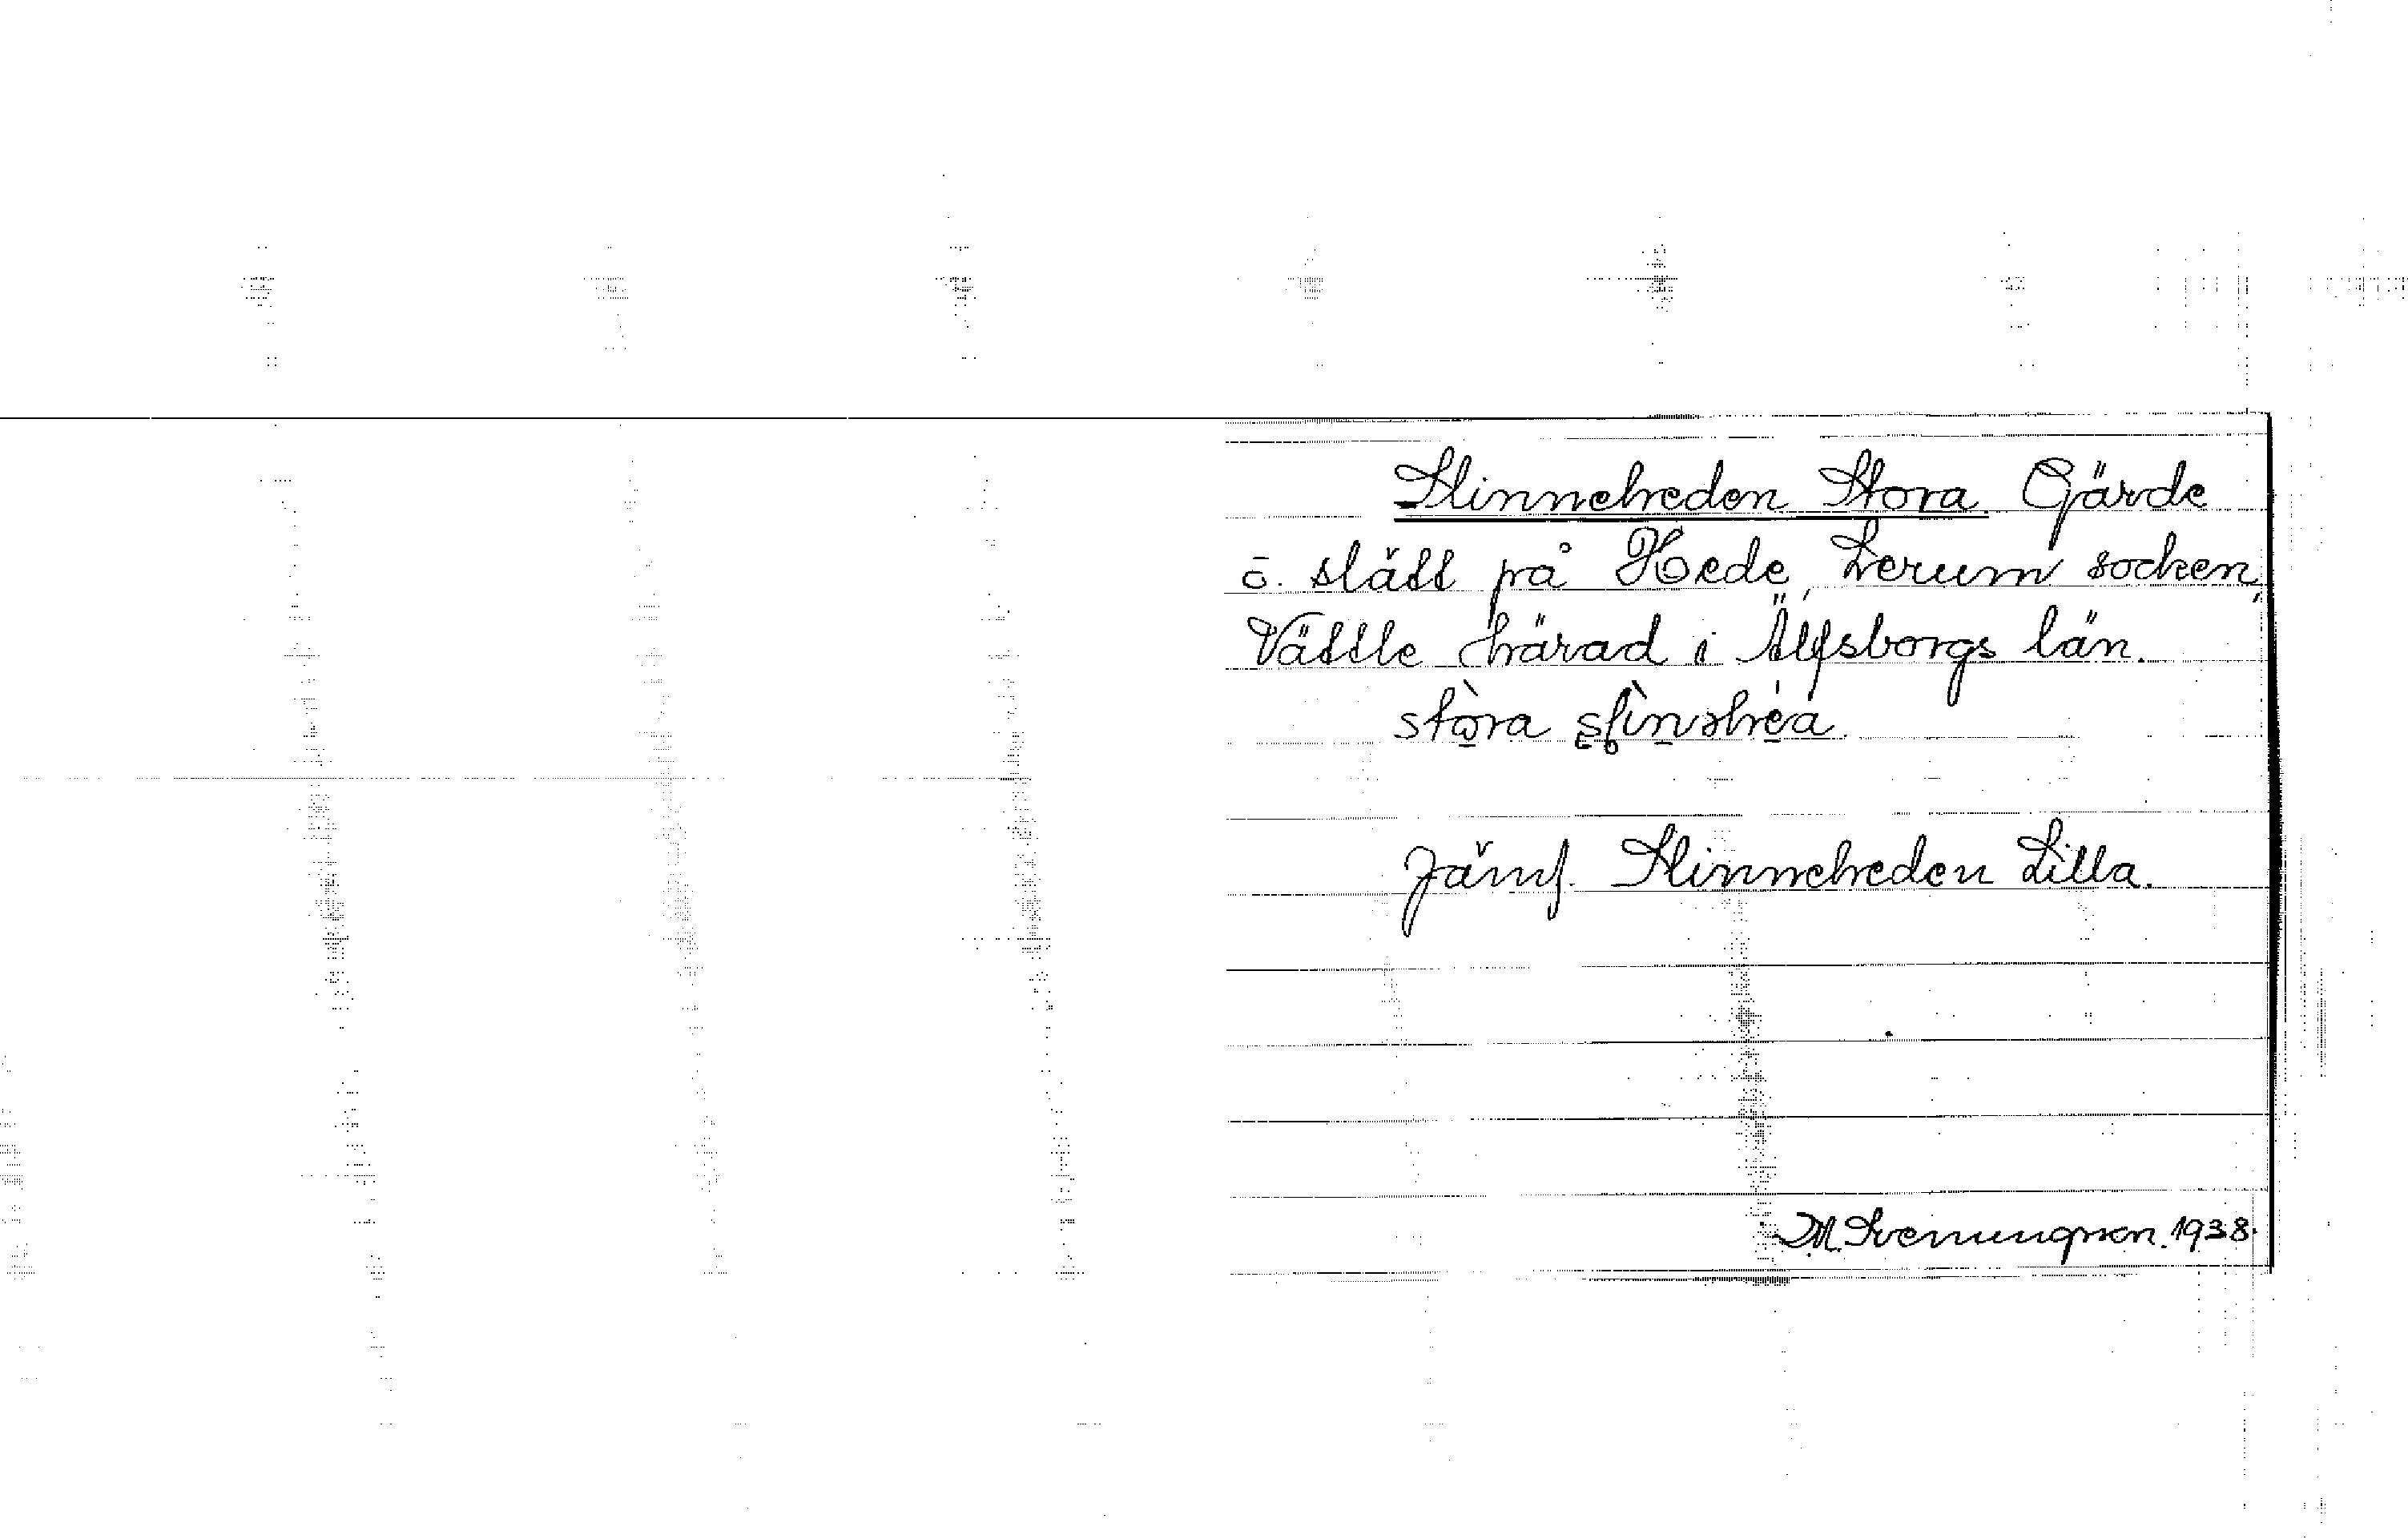 Slinneheden Stora. Gärde
o. slätt på Hede, Lerum socken,
Vättle härad i Älfsborgs län.
stòra
Jämf. Slinneheden Lilla.
M. Svenungsson. 1938.